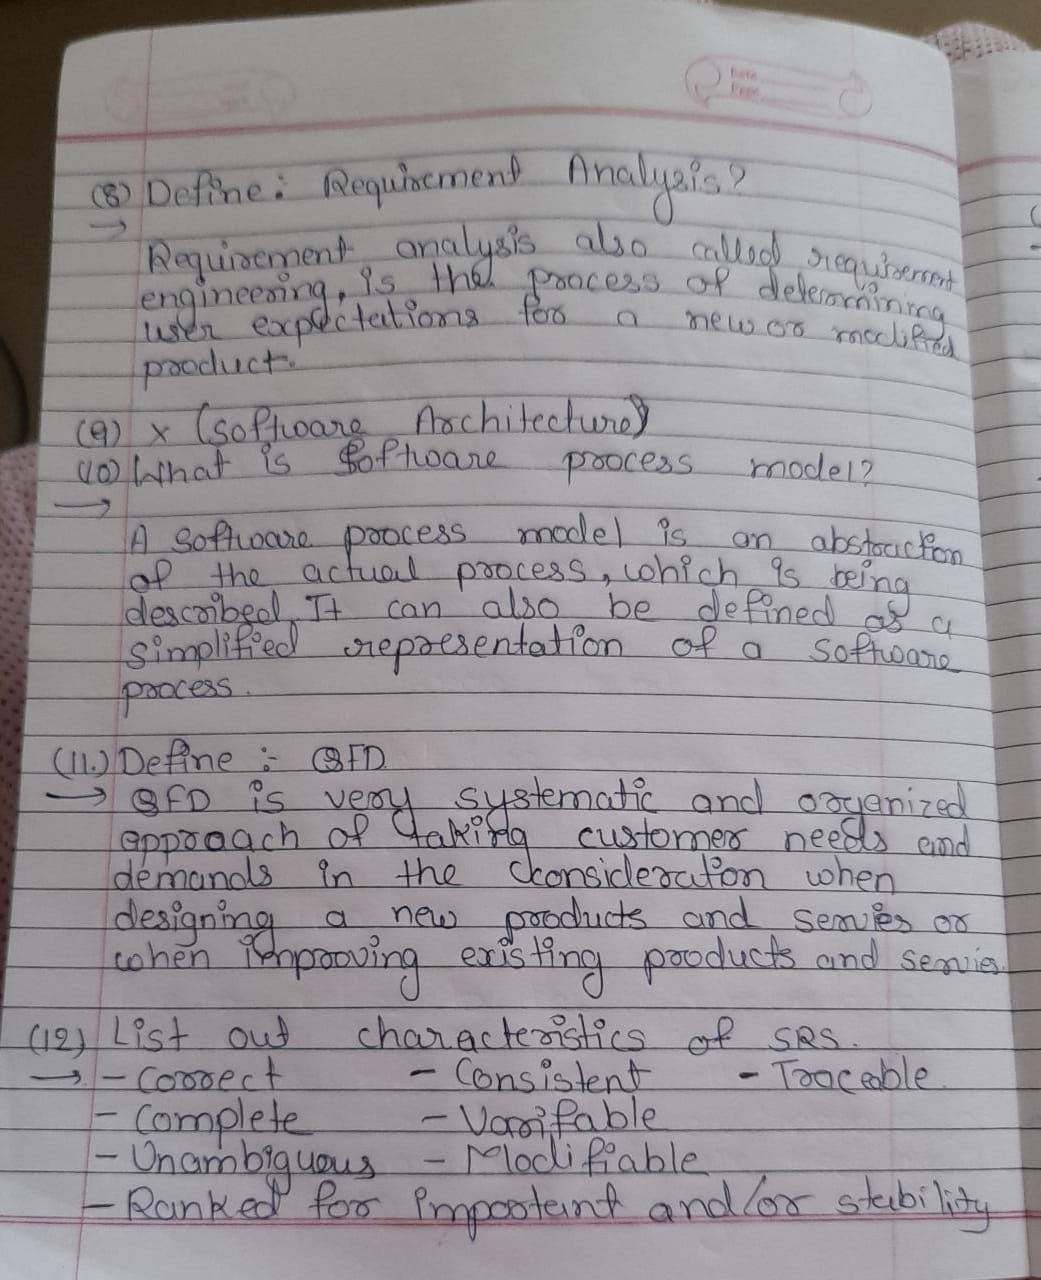 Date
Page
(8) Define: Requirement Analysis?
→
Requirement analysis also called requirement
engineering, is the process of determining
user expectations for a new or modified
product.
(9) x (software Architecture)
(10) What is Software process model?
→
A software process model is an abstraction
of the actual process, which is being
described. It can also be defined as a
simplified representation of a software
process.
(11.) Define : QFD
→ QFD is very systematic and organized
approach of taking customer needs and
demands in the consideration when
designing a new products and servies or
when improving existing products and servies.
(12) List out characteristics of SRS.
→ - Correct - Consistent - Traceable.
- Complete - Varifable
- Unambiguous - Modifiable
- Ranked for importent and/or stability